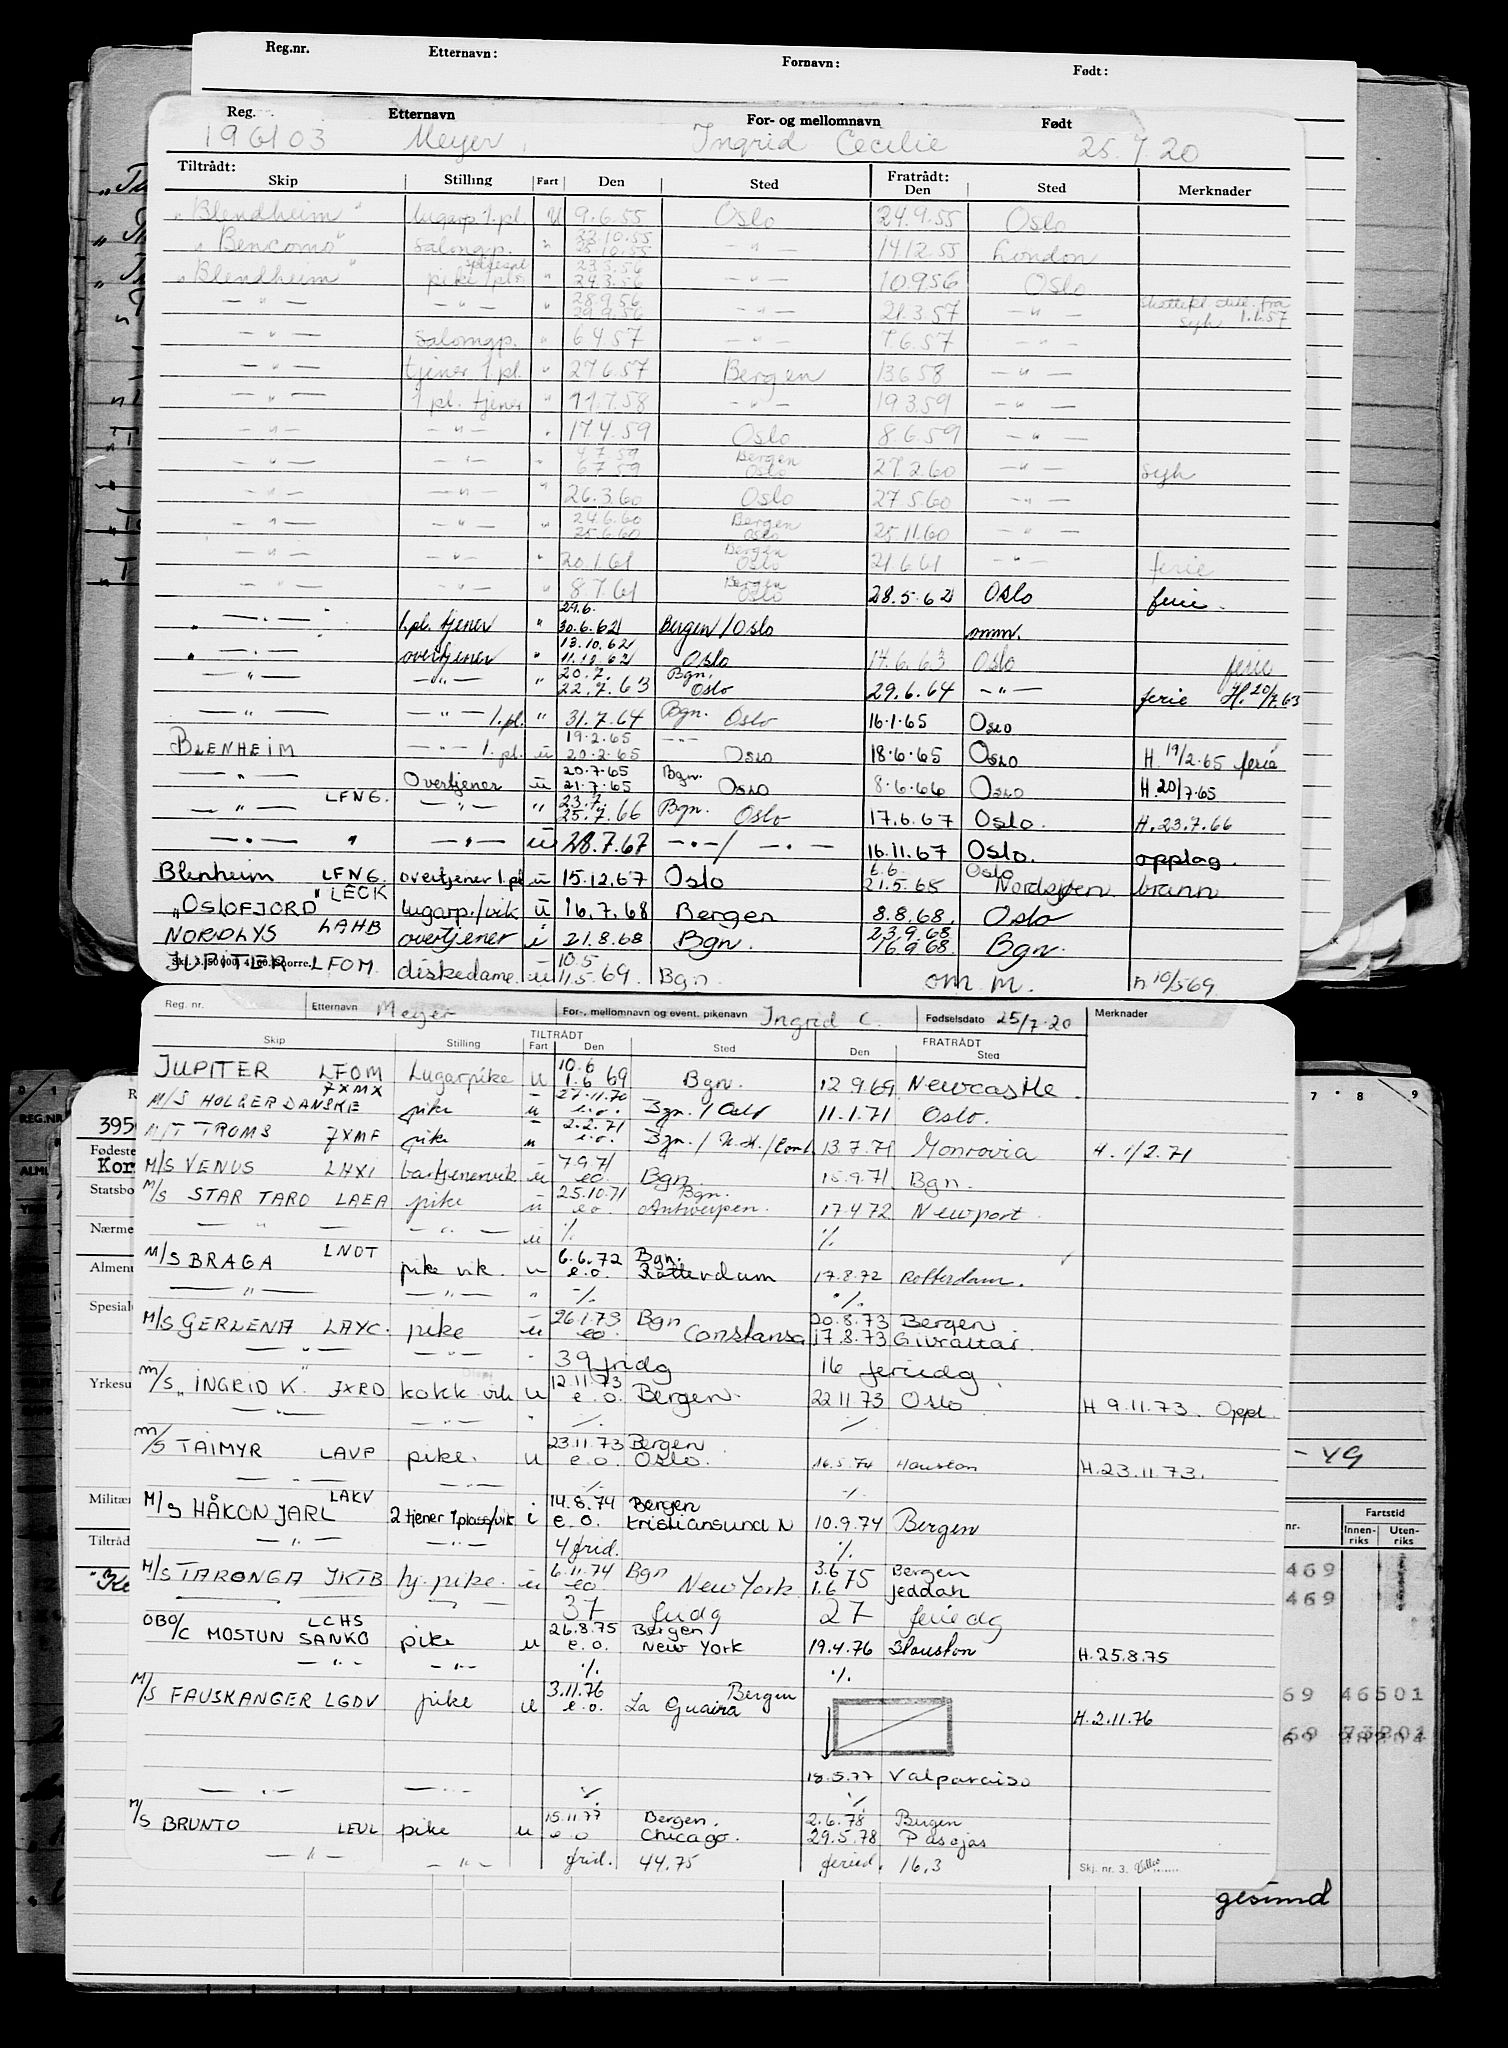 Reg.nr. Etternavn: Fornavn: Født:
Reg. Etternavn For- og mellomnavn Født
196103 Meyer, Ingrid Cecilie 25.7.20
Tiltrådt: Fratrådt:
Skip Stilling Fart Den Sted Den Sted Merknader
"Blendheim" lugarp 1.pl. U 9.6.55 Oslo 24.9.55 Oslo
"Bencomo" salongp. " 22.10.55 25.10.55 — " — 14.12.55 London
"Blendheim" spisesal pike 1pl. " 23.3.56 24.3.56 — " — 10.9.56 Oslo
— " — — " — " 28.9.56 29.9.56 — " — 21.3.57 — " — syk 1.1.57
— " — salongp. " 6.4.57 — " — 7.6.57 — " —
— " — tjener 1.pl. " 27.6.57 Bergen 13.6.58 — " —
— " — 1 pl. tjener " 11.7.58 — " — 19.3.59 — " —
— " — — " — " 17.4.59 Oslo 8.6.59 — " —
— " — — " — " 4.7.59 6.7.59 Bergen Oslo 27.2.60 — " — syk
— " — — " — " 26.3.60 Oslo 27.5.60 — " —
— " — — " — " 24.6.60 25.6.60 Bergen Oslo 25.11.60 — " —
— " — — " — " 20.1.61 Bergen Oslo 21.6.61 — " — ferie
— " — — " — " 8.7.61 Bergen Oslo 28.5.62 Oslo ferie.
— " — 1.pl. tjener " 29.6. 30.6.62 Bergen/Oslo omm.
— " — overtjener " 13.10.62 11.10.62 Oslo 14.6.63 Oslo ferie
— " — — " — " 20.7. 22.7.63 Bgn. Oslo 29.6.64 — " — ferie H. 20/7.63
— " — — " — 1.pl. " 31.7.64 Bgn. Oslo 16.1.65 Oslo
BLENHEIM — " — 1.pl. u 19.2.65 20.2.65 — " — Oslo 18.6.65 Oslo H. 19/2.65 ferie
— " — Overtjener u 20.7.65 21.7.65 Bgn. Oslo 8.6.66 Oslo H.20/7.65
— " — LFNG. — " — " 23.7. 25.7.66 Bgn. Oslo 17.6.67 Oslo. H.23.7.66
— " — " — " — u 28.7.67 — " — / — " — 16.11.67 Oslo. opplag.
Blenheim LFNG. overtjener 1.pl u 15.12.67 Oslo 6.6 21.5.68 Oslo Nordsjøen brann
"OSLOFJORD" LECK lugarp./vik u 16.7.68 Bergen 8.8.68. Oslo
NORDLYS LAHB overtjener i 21.8.68 Bgn. 23.9.68 16.9.68 Bgn.
JUPITER LFOM diskedame u 10.5 11.5.69. Bgn. om m. h 10/5 69
Reg. nr. Etternavn Meyer For-, mellomnavn og event. pikenavn Ingrid C. Fødselsdato 25/7.20 Merknader
TILTRÅDT FRATRÅDT
Skip Stilling Fart Den Sted Den Sted
JUPITER LFOM Lugarpike u 10.6 1.6 69 Bgn. 12.9.69 Newcastle
M/S HOLGER DANSKE JXMX pike u 27.11.70 e.o. Bgn./Oslo 11.1.71 Oslo.
M/T TROMS JXMF pike u 2.2.71 e.o. 13.7.71 Monrovia H. 1/2.71
M/S VENUS LHXI bartjenervik u 7.9.71 eo. Bgn. 15.9.71 Bgn.
M/S STAR TARO LAEA pike u 25.10.71 e.o. Bgn. Antwerpen. 17.4.72 Newport.
— " — — " — u ./. ./.
M/S BRAGA LNOT pike vik. u 6.6.72 e.o. Bgn. Rotterdam 17.8.72 Rotterdam.
— " — — " — " ./. ./.
M/S GERLENA LAYC. pike u 26.1.73 eo. Bgn Constansa 20.8.73 17.8.73 Bergen Givraltar
— " — — " — " 39 fridg 16 feriedg.
M/S "INGRID K." JXRD kokk vik u 12.11.73 e.o. Bergen. 22.11.73 Oslo H 9.11.73. Oppl.
— " — — " — " ./. ./.
M/S TAIMYR LAVP pike. u 23.11.73 e.o. Bergen Oslo. 16.5.74 Houston H.23.11.73.
— " — — " — ./. ./.
M/S HÅKON JARL LAKV 2 tjener 1plass/vik i 14.8.74 e.o. Bergen Kristiansund N 10.9.74 Bergen
— " — — " — 4 frid. ./.
M/S TARONGA JKTB hj.pike. u 6.11.74 eo Bgn New York 3.6 1.6 75 Bergen Jeddah
— " — — " — 37 fridg 27 feriedg
OBO/C MOSTUN SANKO LCHS pike u 26.8.75 e.o. Bergen New York 19.4.76 Houston H.25.8.75
— " — — " — ./. ./.
M/S FAUSKANGER LGDV pike u 3.11.76 e.o. Bergen La Guaira H.2.11.76
18.5.77 Valparaiso
— " — — " — ./. ./.
M/S BRUNTO LEUL pike u 15.11.77 e o Bergen. Chicago. 2.6.78 29.5.78 Bergen Pascjas
— " — — " — frid. 44.75 feried. 16.3
Skj. nr. 3.
REG.NR
395
Fødeste
Kor
Statsbo
Nærme
Almen
Spesial
Yrkesu
Militær
Tiltråd
- 49
nr. Fartstid
Innenriks Utenriks
469
469
69 46501
gesund